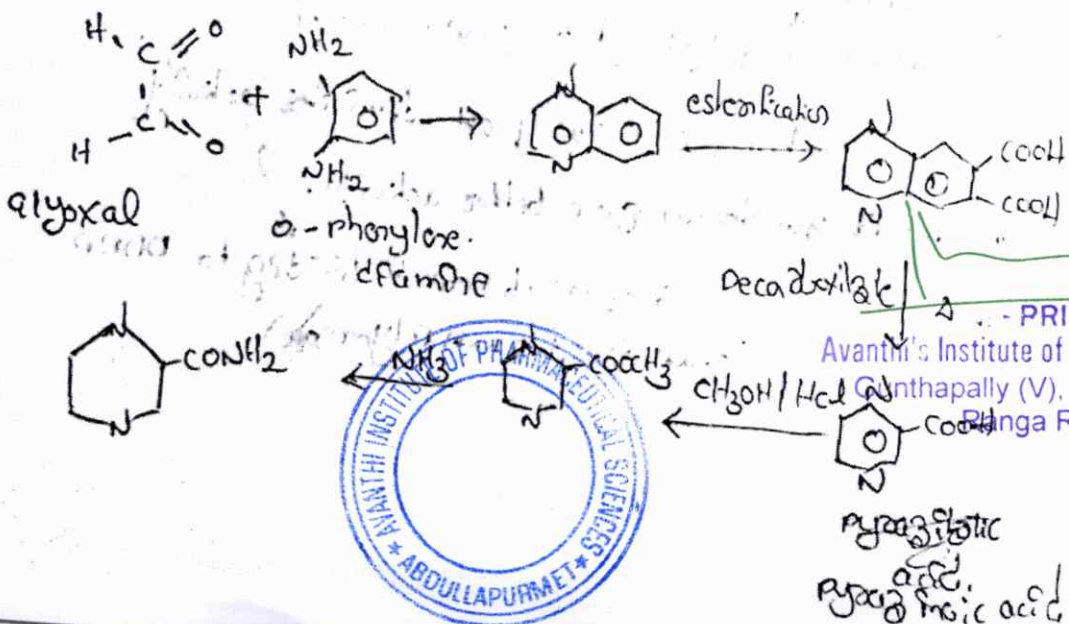 H
C
O
H
C
O
+
NH2
NH2
glyoxal
O - phenylene.
diamine
N
N
esterification
N
N
COOH
COOH
Decarboxilate
Δ
- PRI
Avanthi's Institute of
Gunthapally (V),
Ranga R
N
N
COOH
pyrazinoic acid
CH3OH / HCl
N
N
COOCH3
NH3
N
N
CONH2
AVANTHI INSTITUTE OF PHARMACEUTICAL SCIENCES
* ABDULLAPURMET *